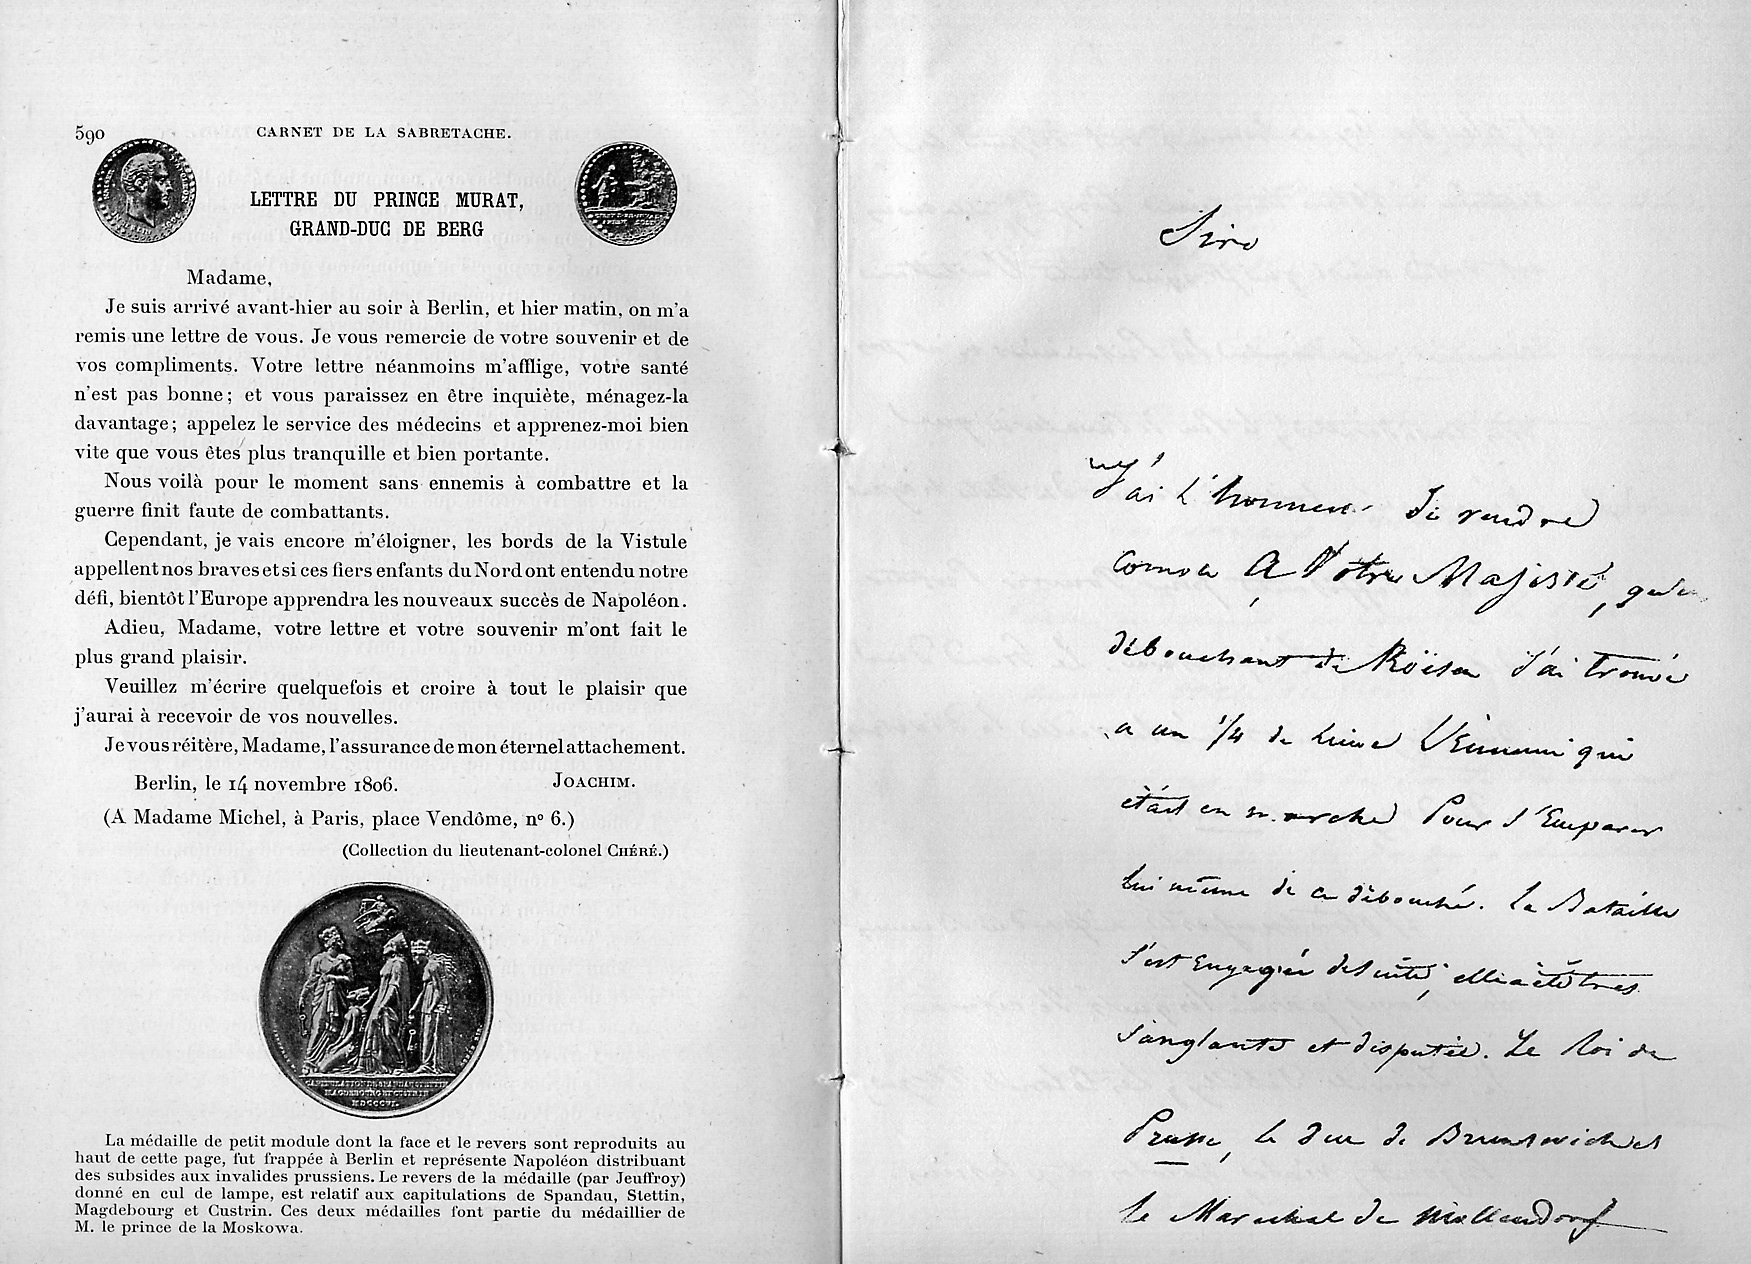 590
CARNET DE LA SABRETACHE.
LETTRE DU PRINCE MURAT,
GRAND-DUC DE BERG
Madame,
Je suis arrivé avant-hier au soir à Berlin, et hier matin, on m'a
remis une lettre de vous. Je vous remercie de votre souvenir et de
vos compliments. Votre lettre néanmoins m'afflige, votre santé
n'est pas bonne; et vous paraissez en être inquiète, ménagez-la
davantage; appelez le service des médecins et apprenez-moi bien
vite que vous êtes plus tranquille et bien portante.
Nous voilà pour le moment sans ennemis à combattre et la
guerre finit faute de combattants.
Cependant, je vais encore m'éloigner, les bords de la Vistule
appellent nos braves et si ces fiers enfants du Nord ont entendu notre
défi, bientôt l'Europe apprendra les nouveaux succès de Napoléon.
Adieu, Madame, votre lettre et votre souvenir m'ont fait le
plus grand plaisir.
Veuillez m'écrire quelquefois et croire à tout le plaisir que
j'aurai à recevoir de vos nouvelles.
Je vous réitère, Madame, l'assurance de mon éternel attachement.
Berlin, le 14 novembre 1806. JOACHIM.
(A Madame Michel, à Paris, place Vendôme, n° 6.)
(Collection du lieutenant-colonel CHÉRÉ.)
MAGDEBOURG ET CUSTRIN
MDCCCVI.
La médaille de petit module dont la face et le revers sont reproduits au
haut de cette page, fut frappée à Berlin et représente Napoléon distribuant
des subsides aux invalides prussiens. Le revers de la médaille (par Jeuffroy)
donné en cul de lampe, est relatif aux capitulations de Spandau, Stettin,
Magdebourg et Custrin. Ces deux médailles font partie du médaillier de
M. le prince de la Moskowa.
Sire
J'ai l'honneur de rendre
A Votre Majesté,
débouchant de Kösen J'ai trouvé
a un 1/4 de lieue l'Ennemi qui
était en marche Pour s'Emparer
lui même de ce débouché. La Bataille
s'est Engagée de suite, elle a été tres
sanglante et disputée. Le Roi de
Prusse, le duc de Brunswick et
le Marechal de Mollendorf